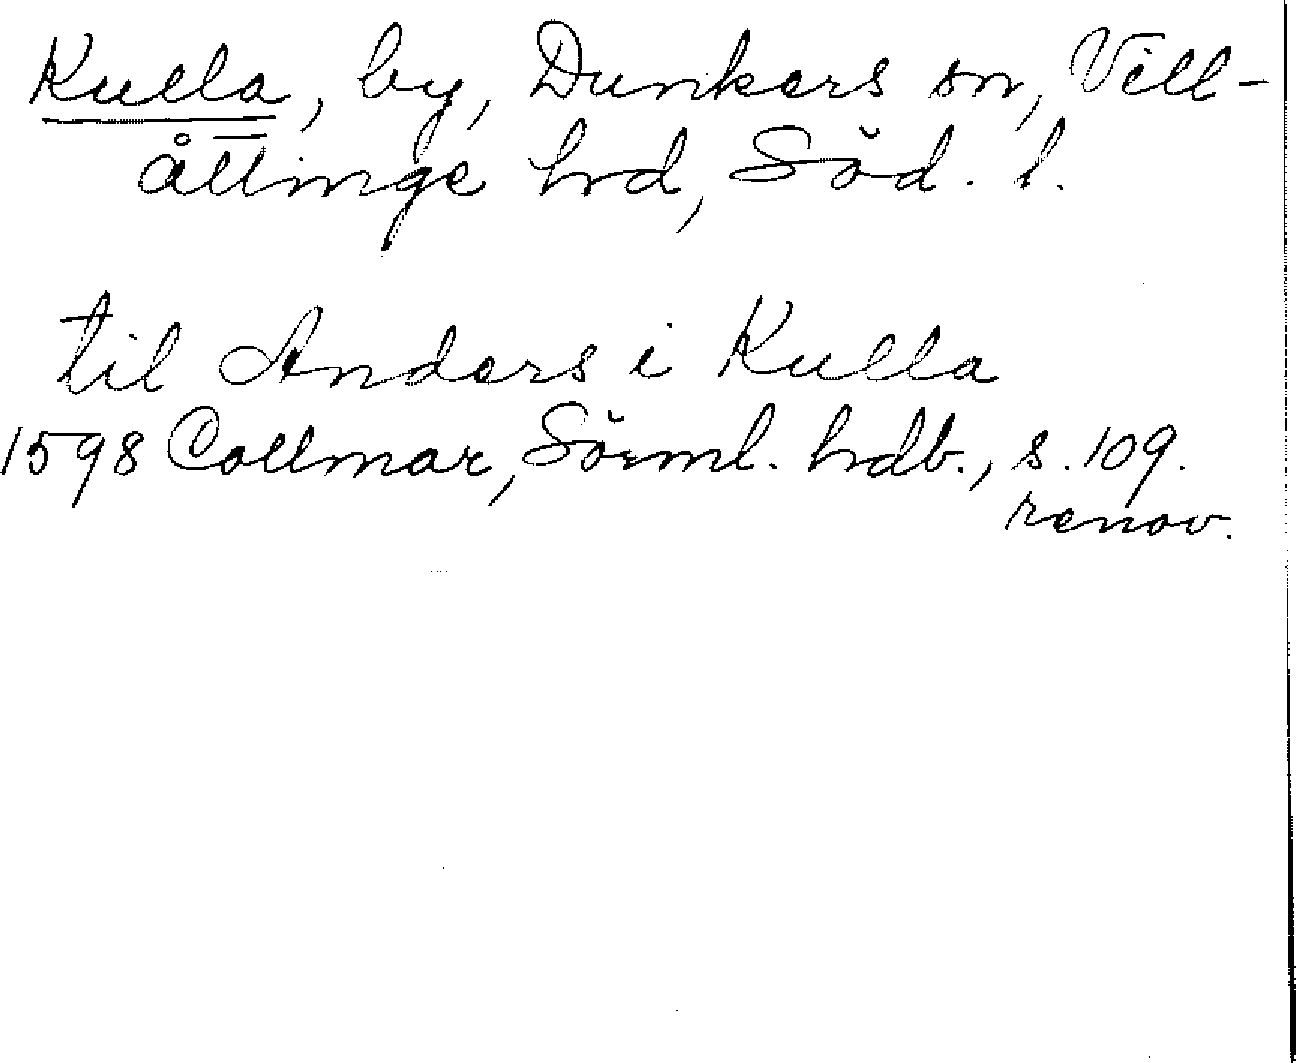 Kulla, by, Dunkers sn, Vill-
åttinge hrd, Söd. l.
til Anders i Kulla
1598 Collmar, Sörml. hdb., s. 109.
renov.